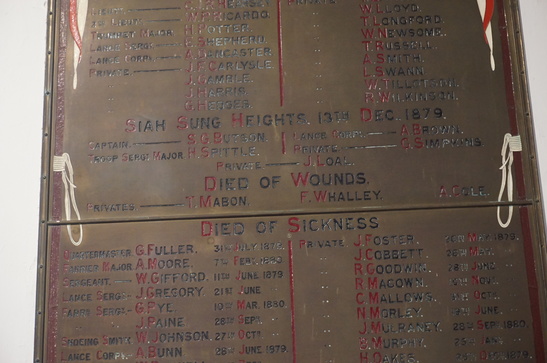 W. LLOYD.
LIEUT. RICARDO. T. LONGFORD
TRUMPET MAJOR H. POTTER. W. NEWSOME.
LANCE SERGT. E. SHEPHERD. T. RUSSELL.
LANCE CORPL. A. LANCASTER A. SMITH.
PRIVATE J.P. CARLYSLE L. SWANN
J. GAMBLE. W. TILLOTSON.
J. HARRIS R. WILKINSON.
G. HEDGES.
SIAH SUNG HEIGHTS, 13TH DEC. 1879.
CAPTAIN. S.G. BUTSON. LANCE CORPL. A. BROWN.
TROOP SERGT MAJOR H. SPITTLE. PRIVATE G. SIMPKINS
PRIVATE J. LOAL.
DIED OF WOUNDS.
PRIVATES T. MABON. F. WHALLEY. A. COLE.
DIED OF SICKNESS
QUARTERMASTER G. FULLER. 31ST JULY 1879. PRIVATE J. FOSTER. MAY 1879.
FARRIER MAJOR A. MOORE. 7TH FEBY 1880. J. COBBETT
SERGEANT W. GIFFORD. 11TH JUNE 1879 R. GOODWIN. 28TH JUNE
LANCE SERGT J. GREGORY. 21ST JUNE R. MACOWN. NOVR.
FARRR SERGT G. PYE. MAR. 1880 C. MALLOWS. OCT.
J. PAINE. 28TH SEPT. N. MORLEY. JUNE
SHOEING SMITH W. JOHNSON. 27TH OCT. J. MULRANEY. 28TH SEPT 1880.
LANCE CORPL A. BUNN 28TH JUNE 1879. S. MURPHY. JAN.
H. OAKES. 1879.